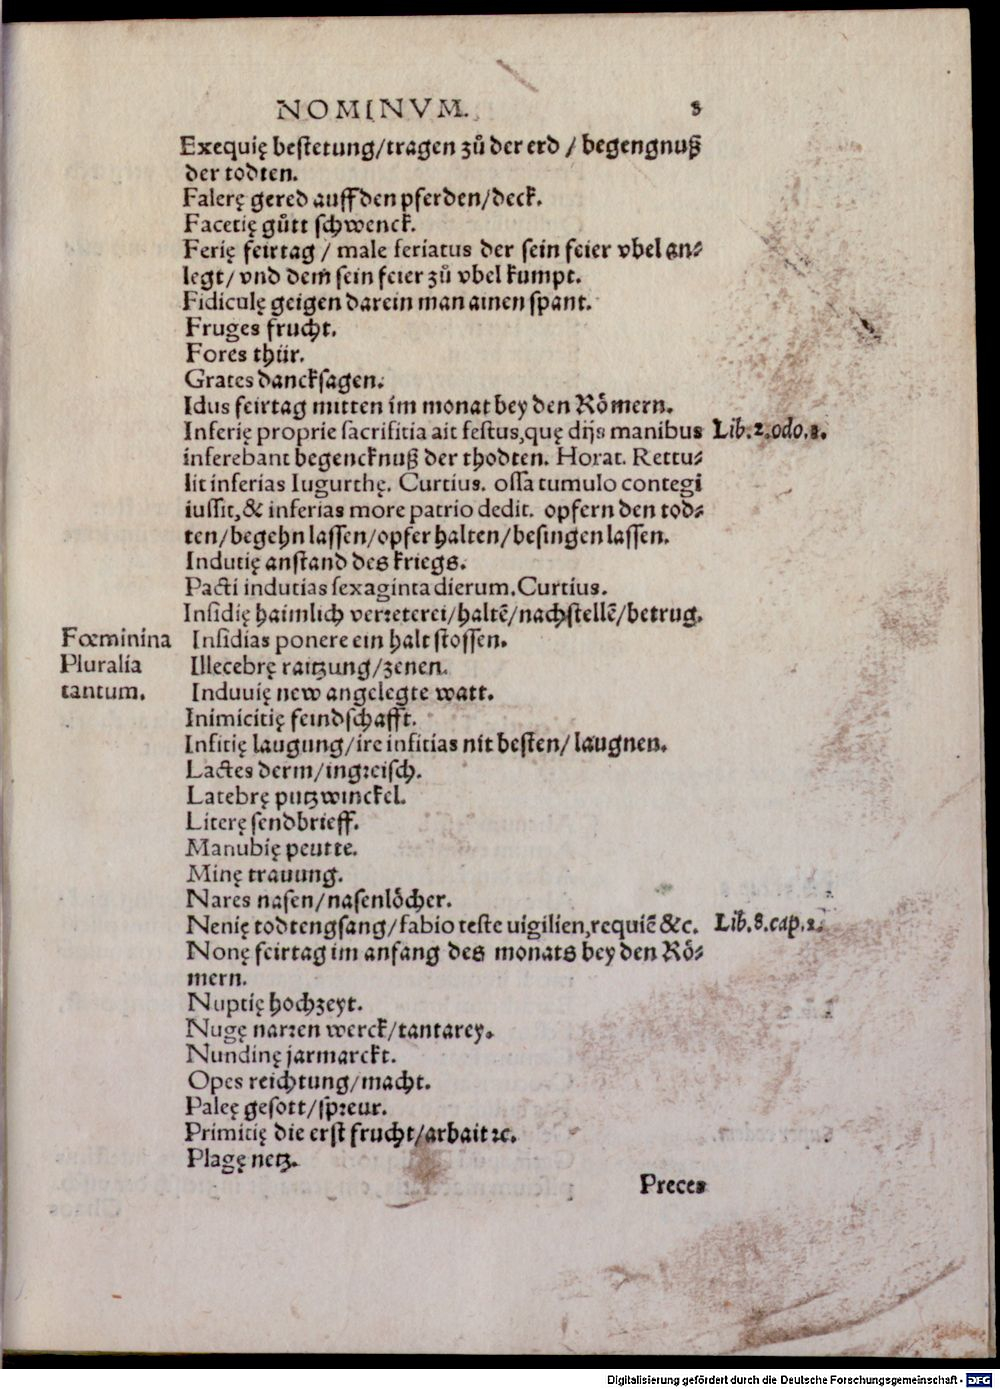 NOMINVM. 8
Exequię bestetung/tragen zů der erd / begengnuß
der todten.
Falerę gered auff den pferden/deck.
Facetię gůtt schwenck.
Ferię feirtag / male feriatus der sein feier vbel an⸗
legt/ vnd dem̄ sein feier zů vbel kumpt.
Fidiculę geigen darein man ainen spant.
Fruges frucht.
Fores thür.
Grates dancksagen.
Idus feirtag mitten im monat bey den Rőmern.
Inferię proprie sacrifitia ait festus,quę dijs manibus Lib.2.odo.3.
inferebant begencknuß der thodten. Horat. Rettu⸗
lit inferias Iugurthę. Curtius. ossa tumulo contegi
iussit,& inferias more patrio dedit. opfern den tod⸗
ten/begehn lassen/opfer halten/besingen lassen.
Indutię anstand des kriegs.
Pacti indutias sexaginta dierum.Curtius.
Insidię haimlich verꝛeterei/haltē/nachstellē/betrug.
Fœminina Insidias ponere ein halt stossen.
Pluralia Illecebrę raitzung/zenen.
tantum. Induuię new angelegte watt.
Inimicitię feindschafft.
Infitię laugung/ire infitias nit besten/ laugnen.
Lactes derm/ingꝛeisch.
Latebrę putzwinckel.
Literę sendbrieff.
Manubię peutte.
Minę trauung.
Nares nasen/nasenlőcher.
Nenię todtengsang/fabio teste uigilien,requiē &c. Lib.8.cap.2.
Nonę feirtag im anfang des monats bey den Rő⸗
mern.
Nuptię hochzeyt.
Nugę narꝛen werck/tantarey.
Nundinę jarmarckt.
Opes reichtung/macht.
Paleę gesott/spꝛeur.
Primitię die erst frucht/arbait ꝛc.
Plagę netz.
Preces
Digitalisierung gefördert durch die Deutsche Forschungsgemeinschaft - DFG